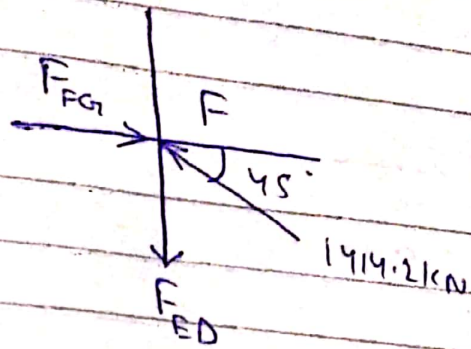 F_FG
F
45°
1414.2 kN
F_ED